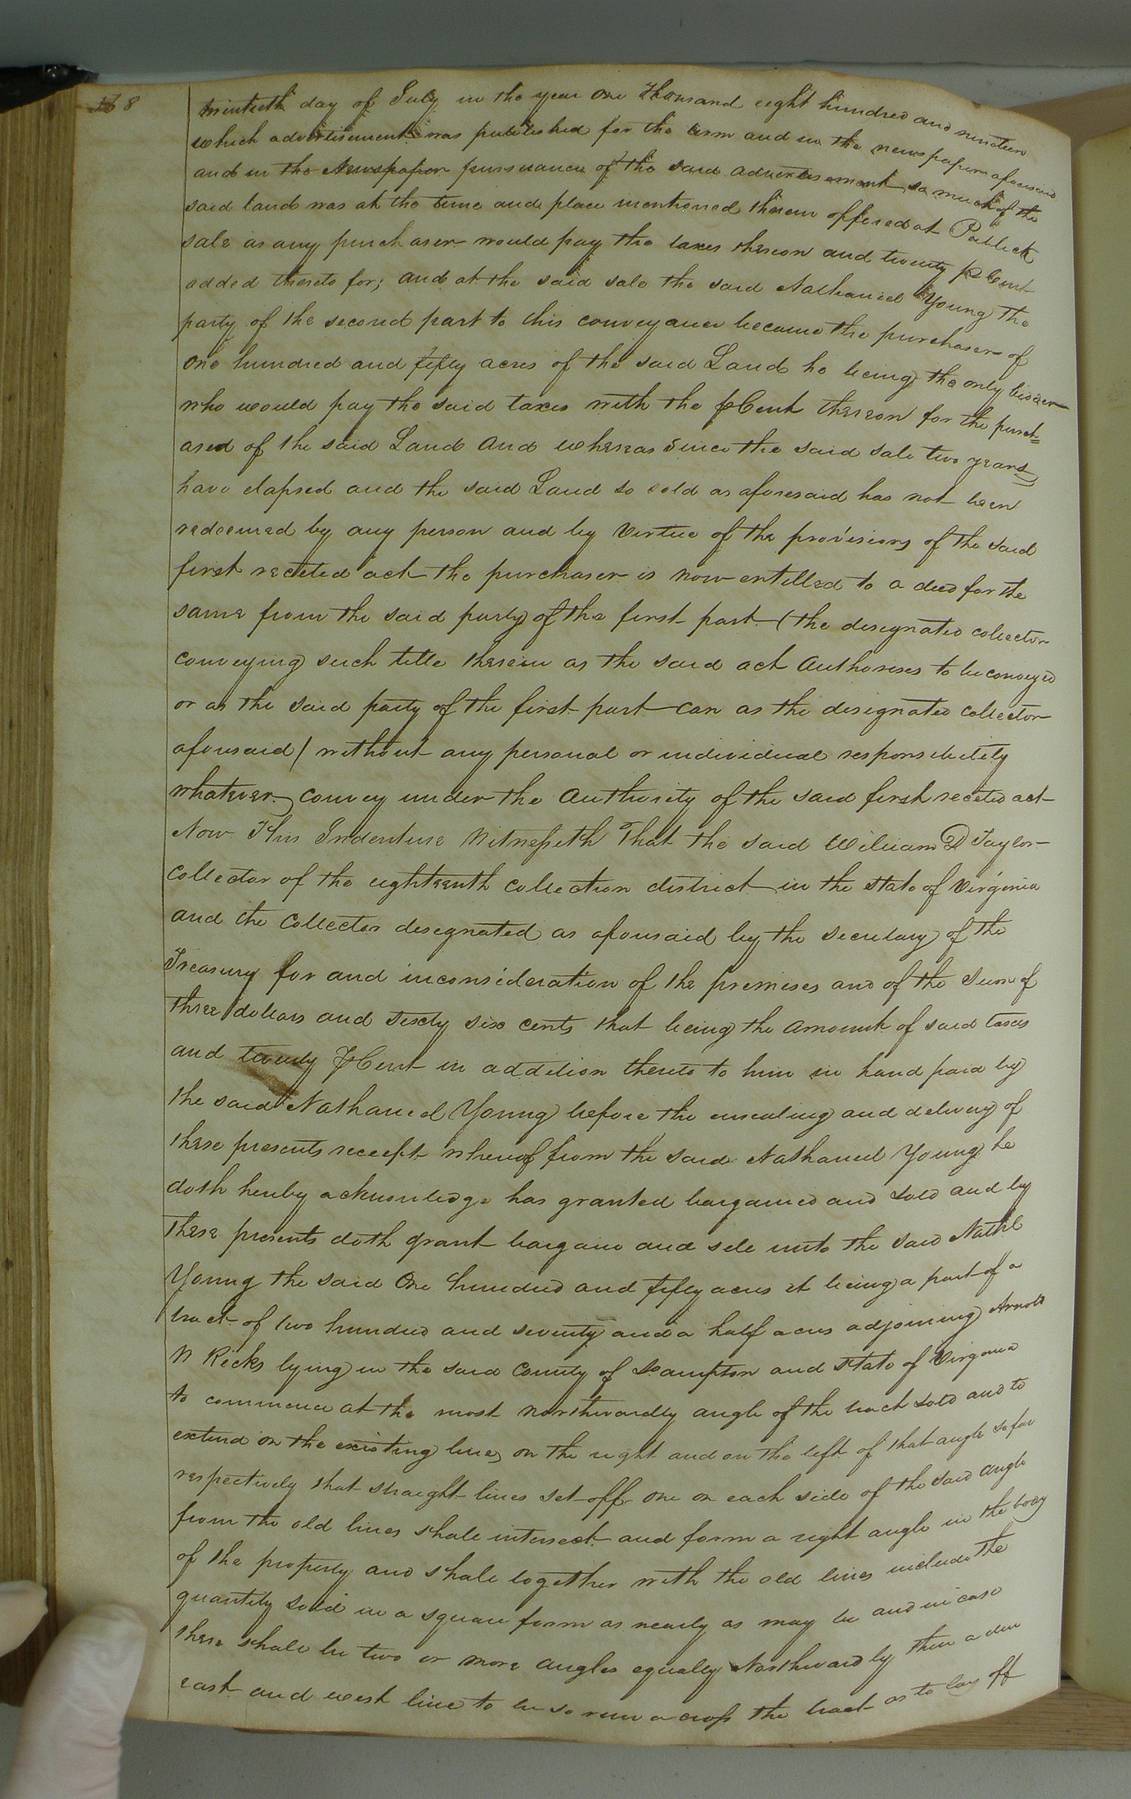 168
day of July in the year One Thousand eight hundred and nineteen
which advertisement was published for the term and in the newspapers aforesaid
and in the Newspaper pursuance of the said advertisement so much of the
said land was at the time and place mentioned therein offered at Publick
sale as any purchaser would pay the taxes thereon and twenty pr Cent
added thereto for; and at the said sale the said Nathaniel Young the
party of the second part to this conveyance became the purchaser of
One hundred and fifty acres of the said Land he being the only bidder
who would pay the said taxes with the pr Cent thereon for the purch=
ased of the said Land And whereas Since the said sale two years
have elapsed and the said Land so sold as aforesaid has not been
redeemed by any person and by virtue of the provisions of the said
first recited act the purchaser is now entitled to a deed for the
same from the said party of the first part (the designated collector
conveying such title therein as the said act Authorises to be conveyed
or as the said party of the first part can as the designated collector
aforesaid) without any personal or individual responsibility
whatever convey under the Authority of the said first recited act
Now This Indenture Witnesseth That the said William D Taylor
Collector of the eighteenth collection district in the state of Virginia
and the Collector designated as aforesaid by the secretary of the
Treasury for and in consideration of the premises and of the Sum of
three dollars and sixty six cents that being the amount of said taxes
and twenty pr Cent in addition thereto to him in hand paid by
the said Nathaniel Young before the ensealing and delivery of
these presents receipt whereof from the said Nathaniel Young he
doth hereby acknowledge has granted bargained and sold and by
These presents doth grant bargain and sell unto the said Nathl
Young the said One hundred and fifty acres it being a part of a
tract of two hundred and seventy and a half acres adjoining Arnold
N Ricks lying in the said County of Sampton and State of Virginia
to commence at the most northwardly angle of the tract sold and to
extend on the existing lines on the right and on the left of that angle so far
respectively that straight lines set off one on each side of the said angle
from the old lines shall intersect and form a right angle in the body
of the property and shall together with the old lines include the
quantity sold in a square form as nearly as may be and in case
there shall be two or more angles equally Northwardly then a due
east and west line to be so run across the tract as to lay off